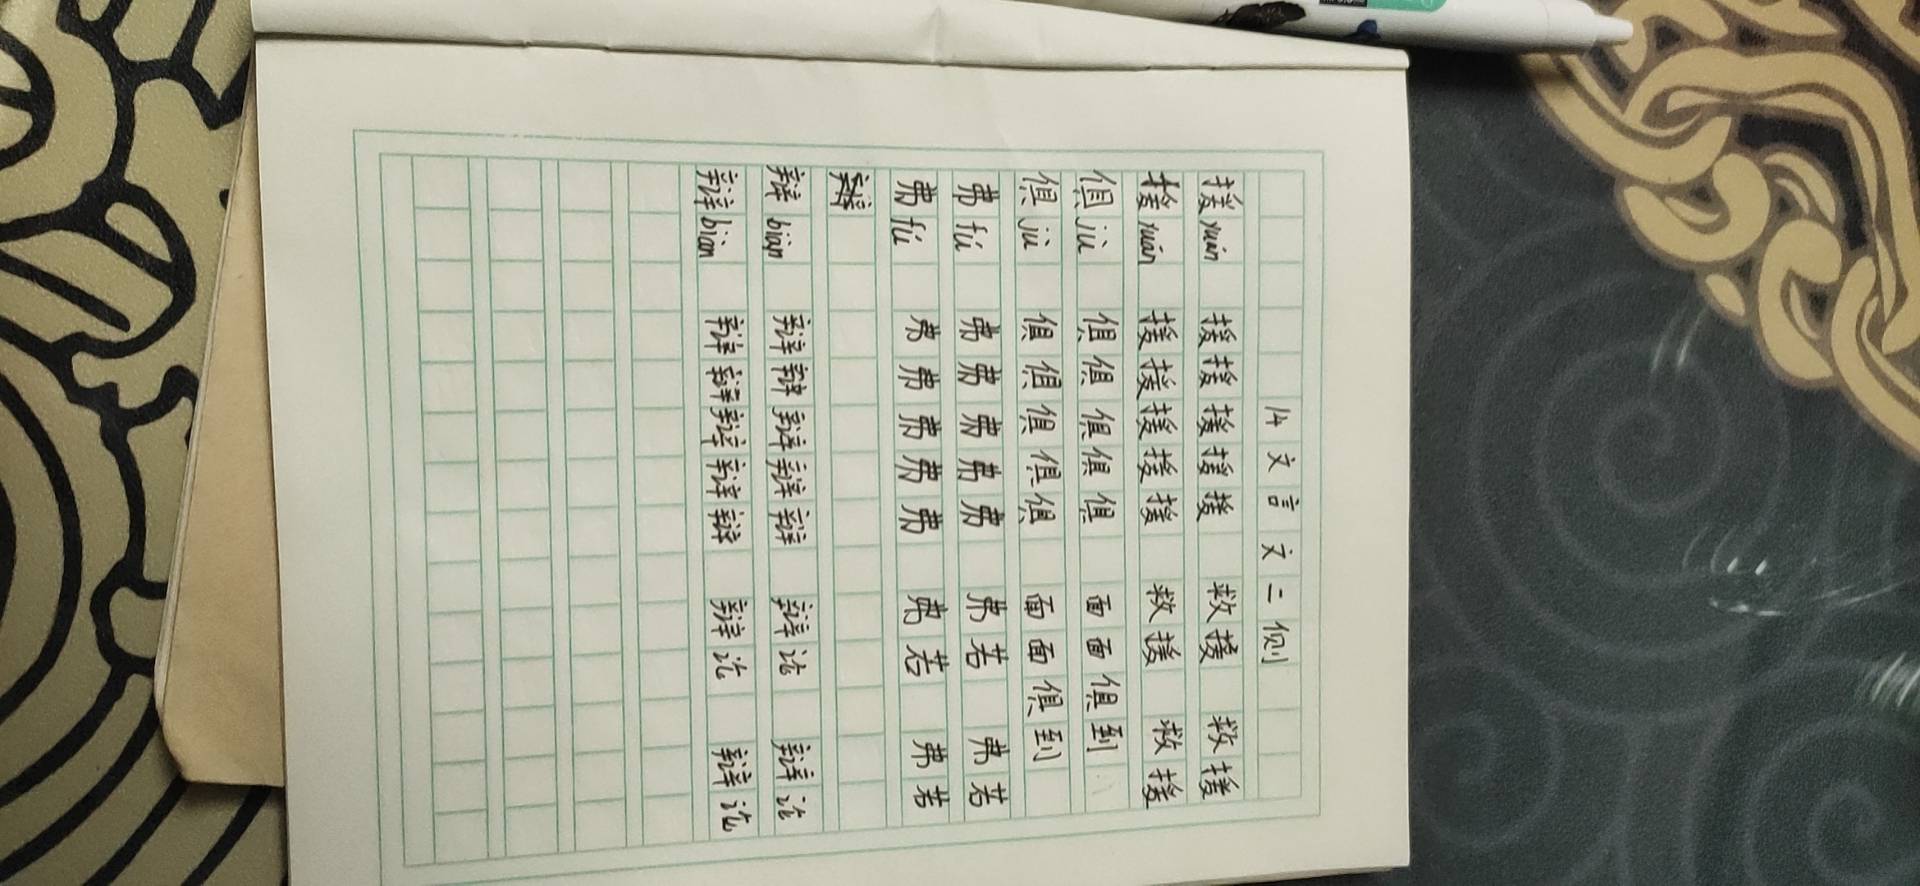 14 文言文二则
援 yuán 援援援援援 救援 救援
援 yuán 援援援援援 救援 救援
俱 jù 俱俱俱俱俱 面面俱到
俱 jù 俱俱俱俱俱 面面俱到
弗 fú 弗弗弗弗弗 弗若 弗若
弗 fú 弗弗弗弗弗 弗若 弗若
辩 biàn 辩辩辩辩辩 辩论 辩论
辩 biàn 辩辩辩辩辩 辩论 辩论